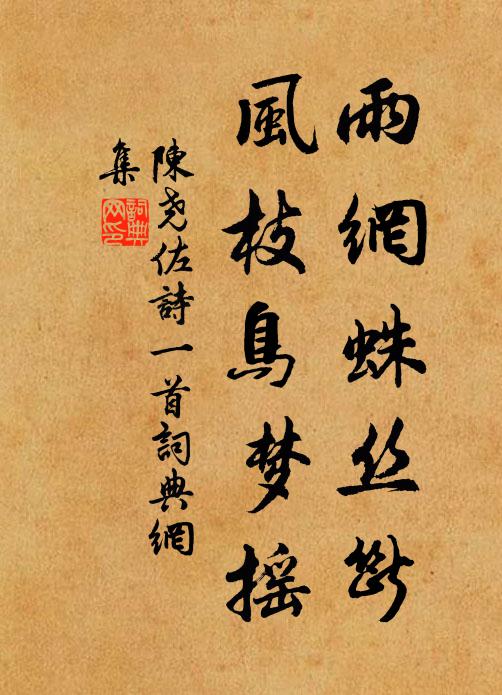 雨網蛛丝斷
風枝鳥梦摇
陳堯佐詩一首詞典網
集
詞典网印